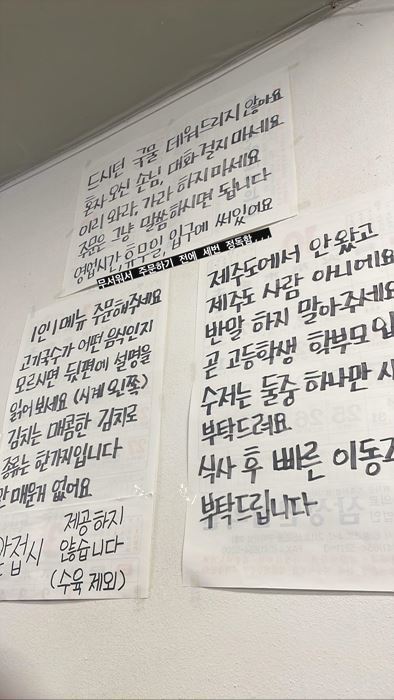 드시던 국물 데워드리지 않아요
혼자 오신 손님, 대화 걸지 마세요
이리 와라, 가라 하지 마세요
주문은 그냥 말씀하시면 됩니다
영업시간, 휴무일, 입구에 써있어요
무서워서 주문하기 전에 세번 정독함...
1인 1메뉴 주문해주세요
고기국수가 어떤 음식인지
모르시면 뒷편에 설명을
읽어보세요 (시계 왼쪽)
김치는 매콤한 김치로
종류는 한가지입니다
안 매운거 없어요
앞접시 제공하지
않습니다
(수육 제외)
제주도에서 안 왔고
제주도 사람 아니에요
반말 하지 말아주세요
곧 고등학생 학부모입
수저는 둘중 하나만 사
부탁드려요
식사 후 빠른 이동
부탁드립니다